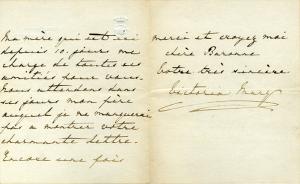 Ma mère qui est ici
depuis 10 jours me
charge de toutes ses
amitiés pour vous.
Nous attendons dans
ces jours mon père
auquel je ne manquerai
pas a montrer votre
charmante lettre.
Encore une fois
merci et croyez moi
chère Baronne
Votre très sincère
Victoria Mary